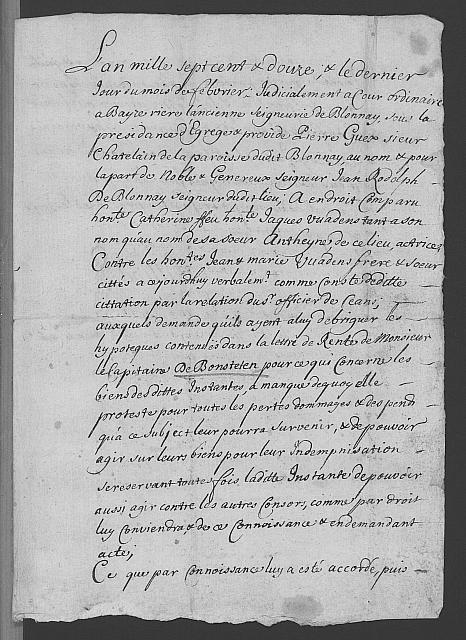 L'an mille sept cent & douze, & le dernier
Jour du mois de fébvrier. Judicialement a Cour ordinaire
a Bayze riere l'ancienne seigneurie de Blonnay, sous la
presidance d'Egrege & provide Pierre Guex sieur
Chatelain de la paroisse dudit Blonnay, au nom & pour
la part de Noble & Genereux seigneur Jean Rodolph
De Blonnay seigneur dudit lieu; A endroit Comparu
honte Catherine ffeu honte Jaques Vuadens tant a son
nom qu'au nom de sa soeur Antheyne de ce lieu, actrices
Contre les hontes Jean & marie Vuadens frere & soeur
cittés a ce jourdhuy verbalemt comme Conste de ditte
cittation par la relation du Sr officier de Ceans;
auxquels demande qu'ils ayent a luy debriguer les
hypoteques contenües dans la lettre de Rente de Monsieur
le Capitaine De Bonsteten pour ce qui Concerne les
biens des dittes Instantes, a manque de quoy elle
proteste pour toutes les pertes dommages & despend
qu'a ce Subject leur pourra survenir, & de pouvoir
agir sur leurs biens pour leur Indempnisation
se reservant toute fois la ditte Instante de pouvoir
aussi agir contre les autres Consors, comme par droit
luy Conviendra, & de ce Connoissance & en demandant
acte;
Ce que par Connoissance luy a esté accordé, puis